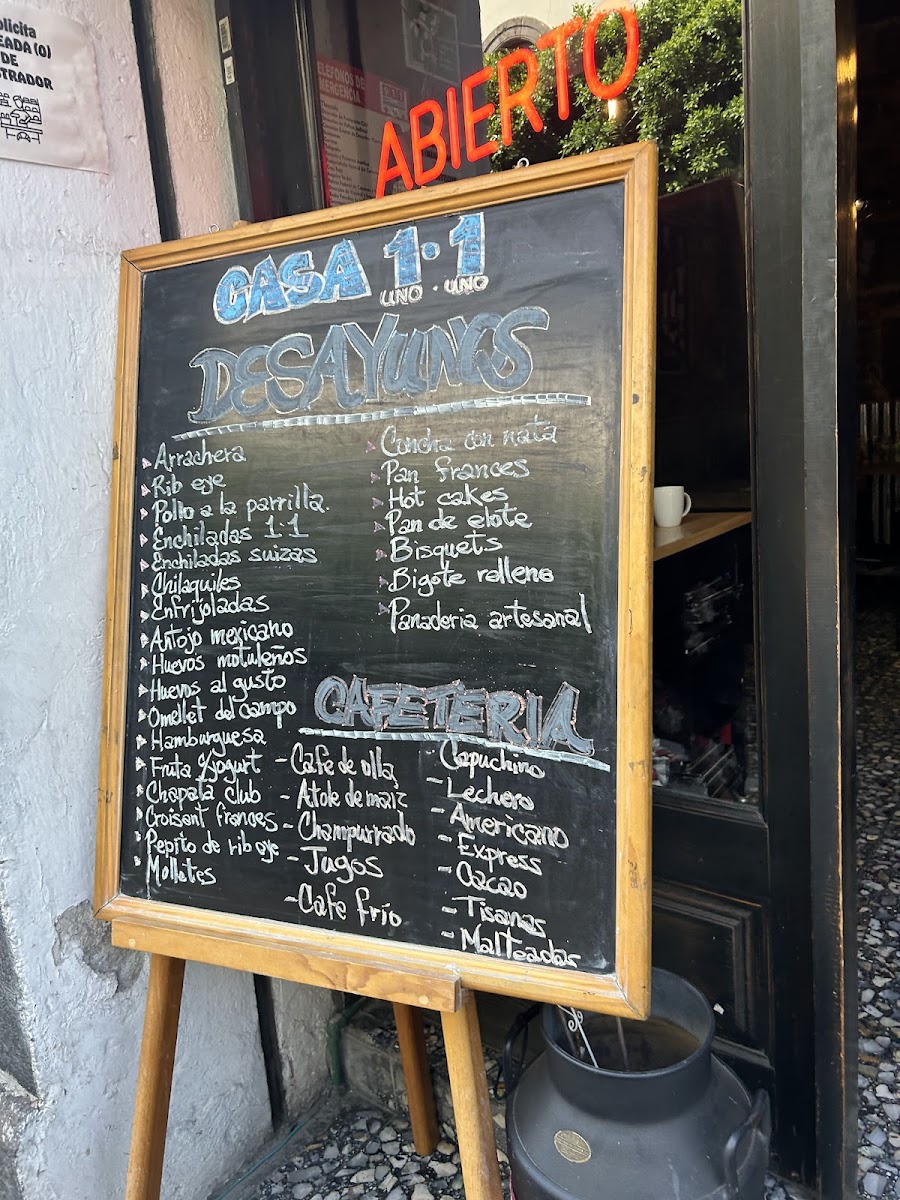 olicita
EADA (O)
DE
STRADOR
ABIERTO
CASA 1·1
UNO · UNO
DESAYUNOS
Arrachera
Rib eye
Pollo a la parrilla.
Enchiladas 1·1
Enchiladas suizas
Chilaquiles
Enfrijoladas
Antojo mexicano
Huevos motuleños
Huevos al gusto
Omellet del campo
Hamburguesa
Fruta y/yogurt
Chapata club
Croisant frances
Pepito de rib eye
Molletes
Concha con nata
Pan frances
Hot cakes
Pan de elote
Bisquets
Bigote relleno
Panaderia artesanal
CAFETERIA
- Cafe de olla
- Atole de maiz
- Champurrado
- Jugos
- Cafe frío
- Capuchino
- Lechero
- Americano
- Express
- Cacao
- Tisanas
- Malteadas